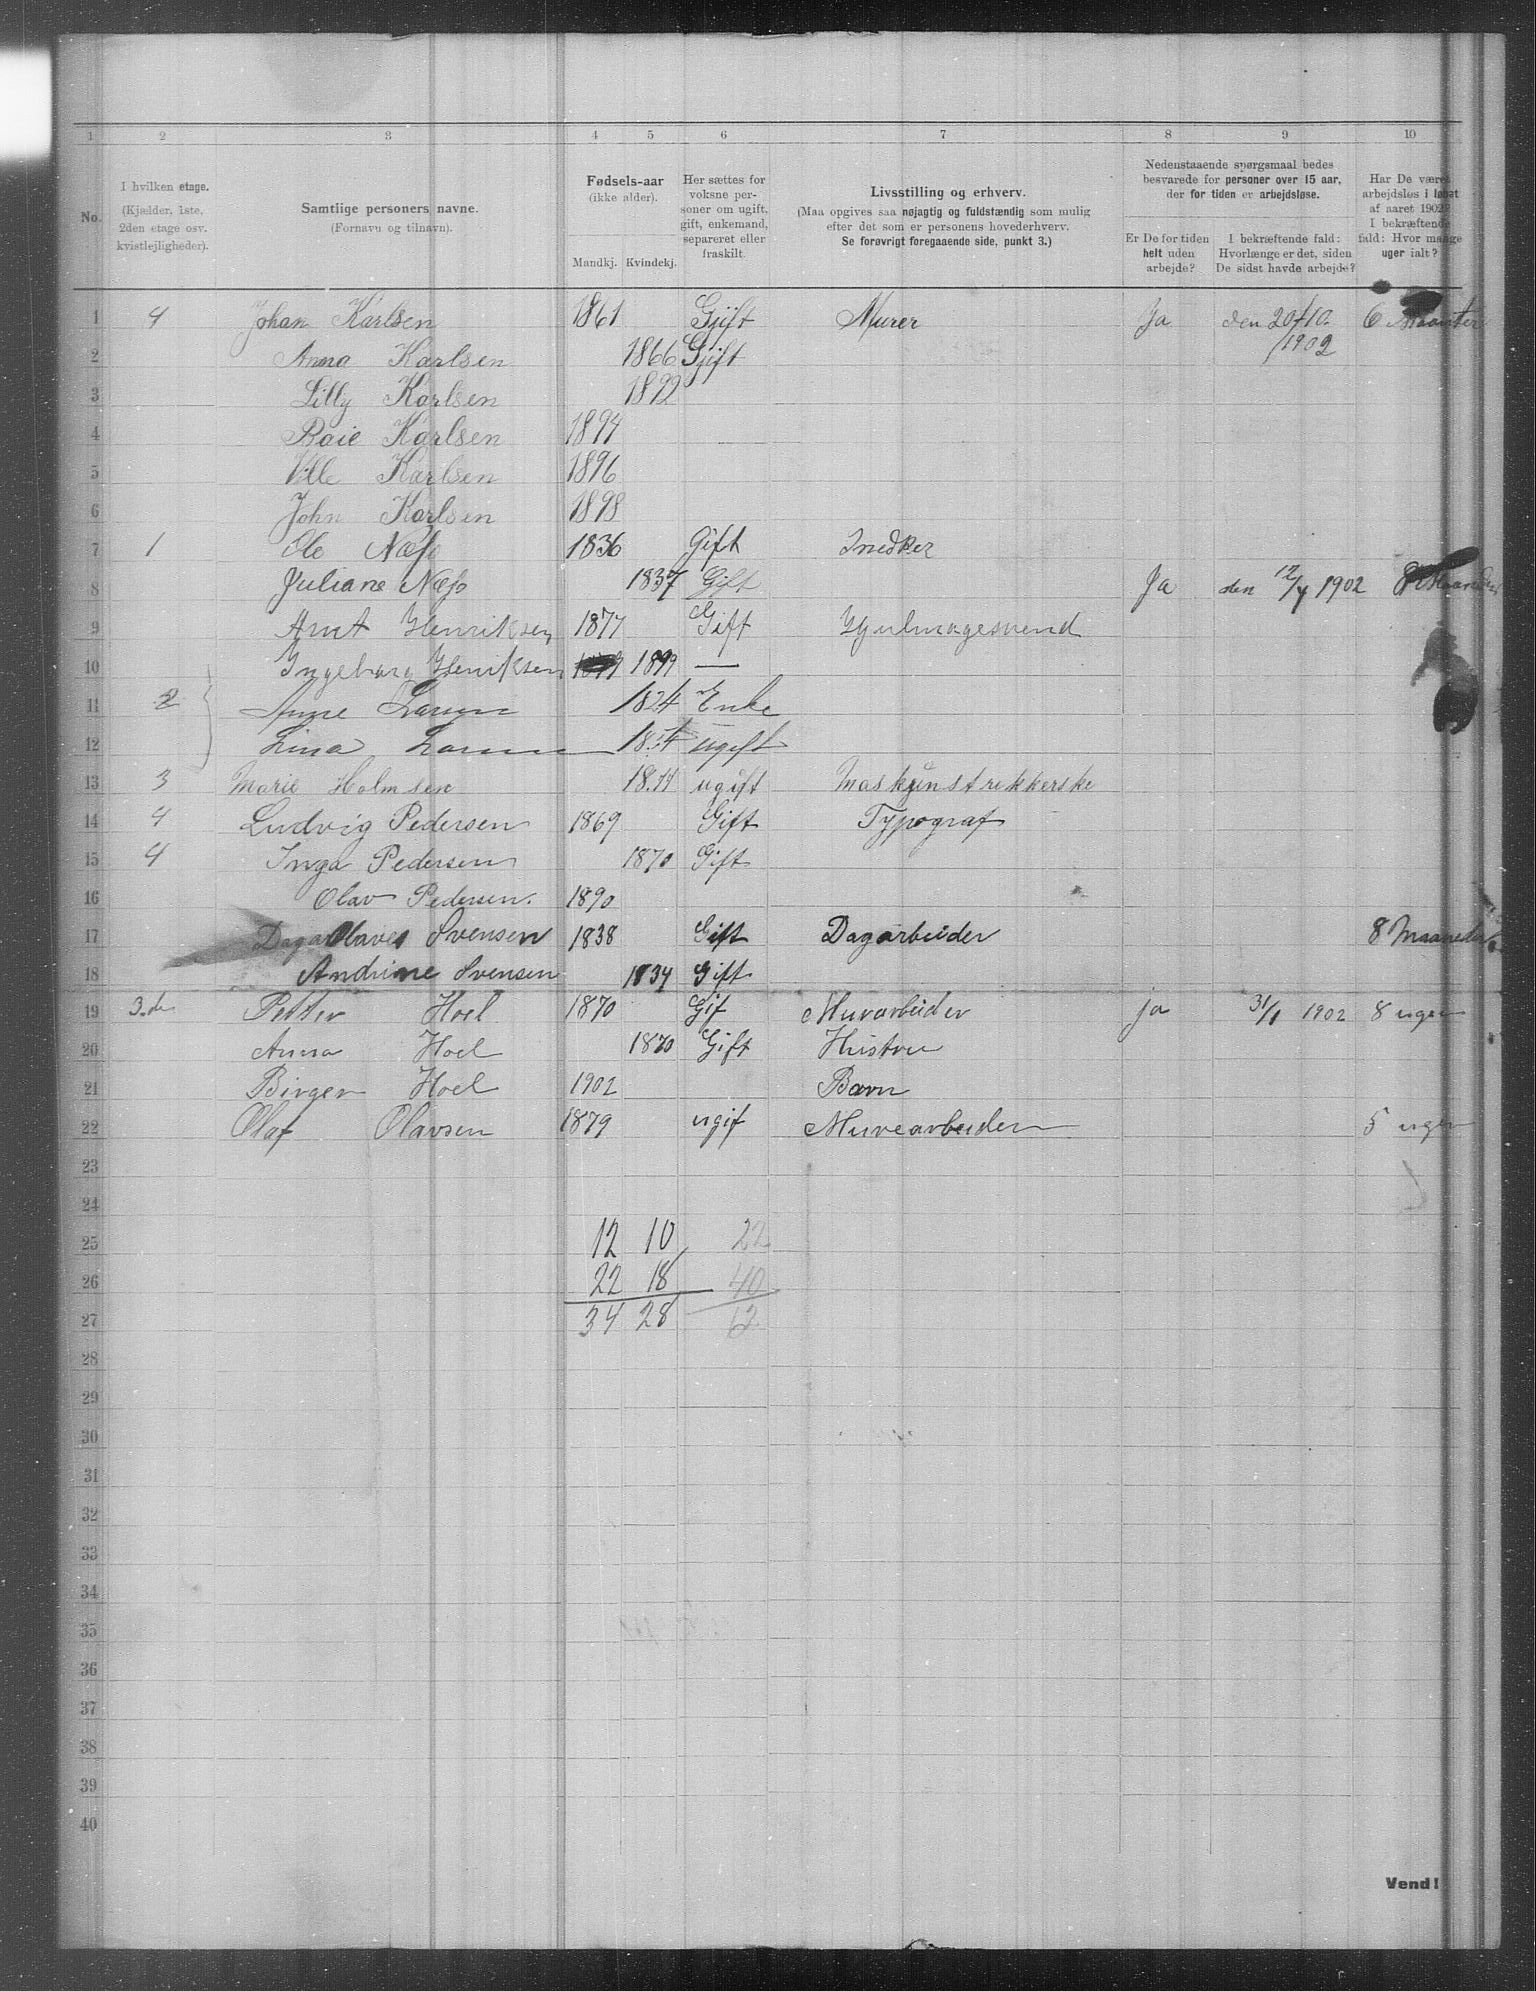 1 2 3 4 5 6 7 8 9 10
No.
I hvilken etage.
(Kjælder, 1ste, 2den etage osv. kvistlejligheder).
Samtlige personers navne.
(Fornavn og tilnavn).
Fødsels-aar
(ikke alder).
Mandkj. Kvindekj.
Her sættes for voksne personer om ugift, gift, enkemand, separeret eller fraskilt.
Livsstilling og erhverv.
(Maa opgives saa nøjagtig og fuldstændig som mulig
efter det som er personens hovederhverv.
Se forøvrigt foregaaende side, punkt 3.)
Nedenstaaende spørgsmaal bedes
besvarede for personer over 15 aar,
der for tiden er arbejdsløse.
Er De for tiden helt uden arbejde?
I bekræftende fald: Hvorlænge er det, siden De sidst havde arbejde?
Har De været arbejdsløs i løbet af aaret 1902? I bekræftende fald: Hvor mange uger ialt?
1 4 Johan Karlsen 1861 Gjift Murer Ja den 20/10. 6
/1902
2 Anna Karlsen 1866 Gjift
3 Lilly Karlsen 1892
4 Karlsen 1894
5 Ville Karlsen 1896
6 John Karlsen 1898
7 1 Ole Næss 1836 Gift Snedker
8 Juliane Næss 1837 Gift Ja den 12/4 1902 8
9 Arnt Henriksen 1877 Gift Hjulmagesvend
10 Ingeborg Henriksen 1899 —
11 2 Anne Larsen 1824 Enke
12 Lina Larsen ugift
13 3 Marie Holmsen ugift Maskinstrikkerske
14 4 Ludvig Pedersen 1869 Gift Typograf
15 4 Inga Pedersen 1870 Gift
16 Olav Pedersen. 1890
17 Olaves Svensen 1838 Gift Dagarbeider 8 Maaneder
18 Andrine Svensen 1834 Gift
19 3.de Petter Hoel 1870 Gif Murarbeider ja 31/1 1902 8 uger
20 Anna Hoel 1870 Gift Hustru
21 Birger Hoel 1902 Barn
22 Olaf Olavsen 1879 ugif Murearbeider 5 uger
23
24
25 12 10 22
26 22 18 40
27 34 28 62
28
29
30
31
32
33
34
35
36
37
38
39
40
Vend!